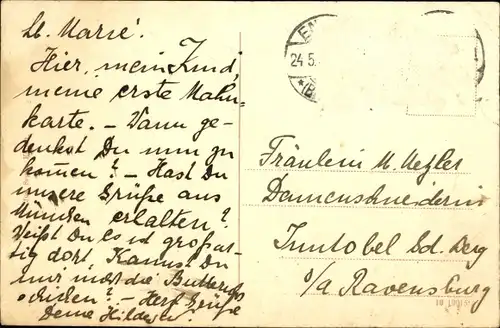 Lb. Marie!
Hier, mein Kind,
meine erste Mahn-
karte. - Wann ge-
denkst Du nun zu
kommen? - Hast Du
unsere Grüße aus
München erhalten?
Weißt Du, Es ist großar-
tig dort. Kannst Du
mir nicht die
schicken? - Herzl. Grüße
Deine
24.5.
Fräulein M. Metzler
Damenschneiderin
Inntobel Bd. Berg
o/a Ravensburg